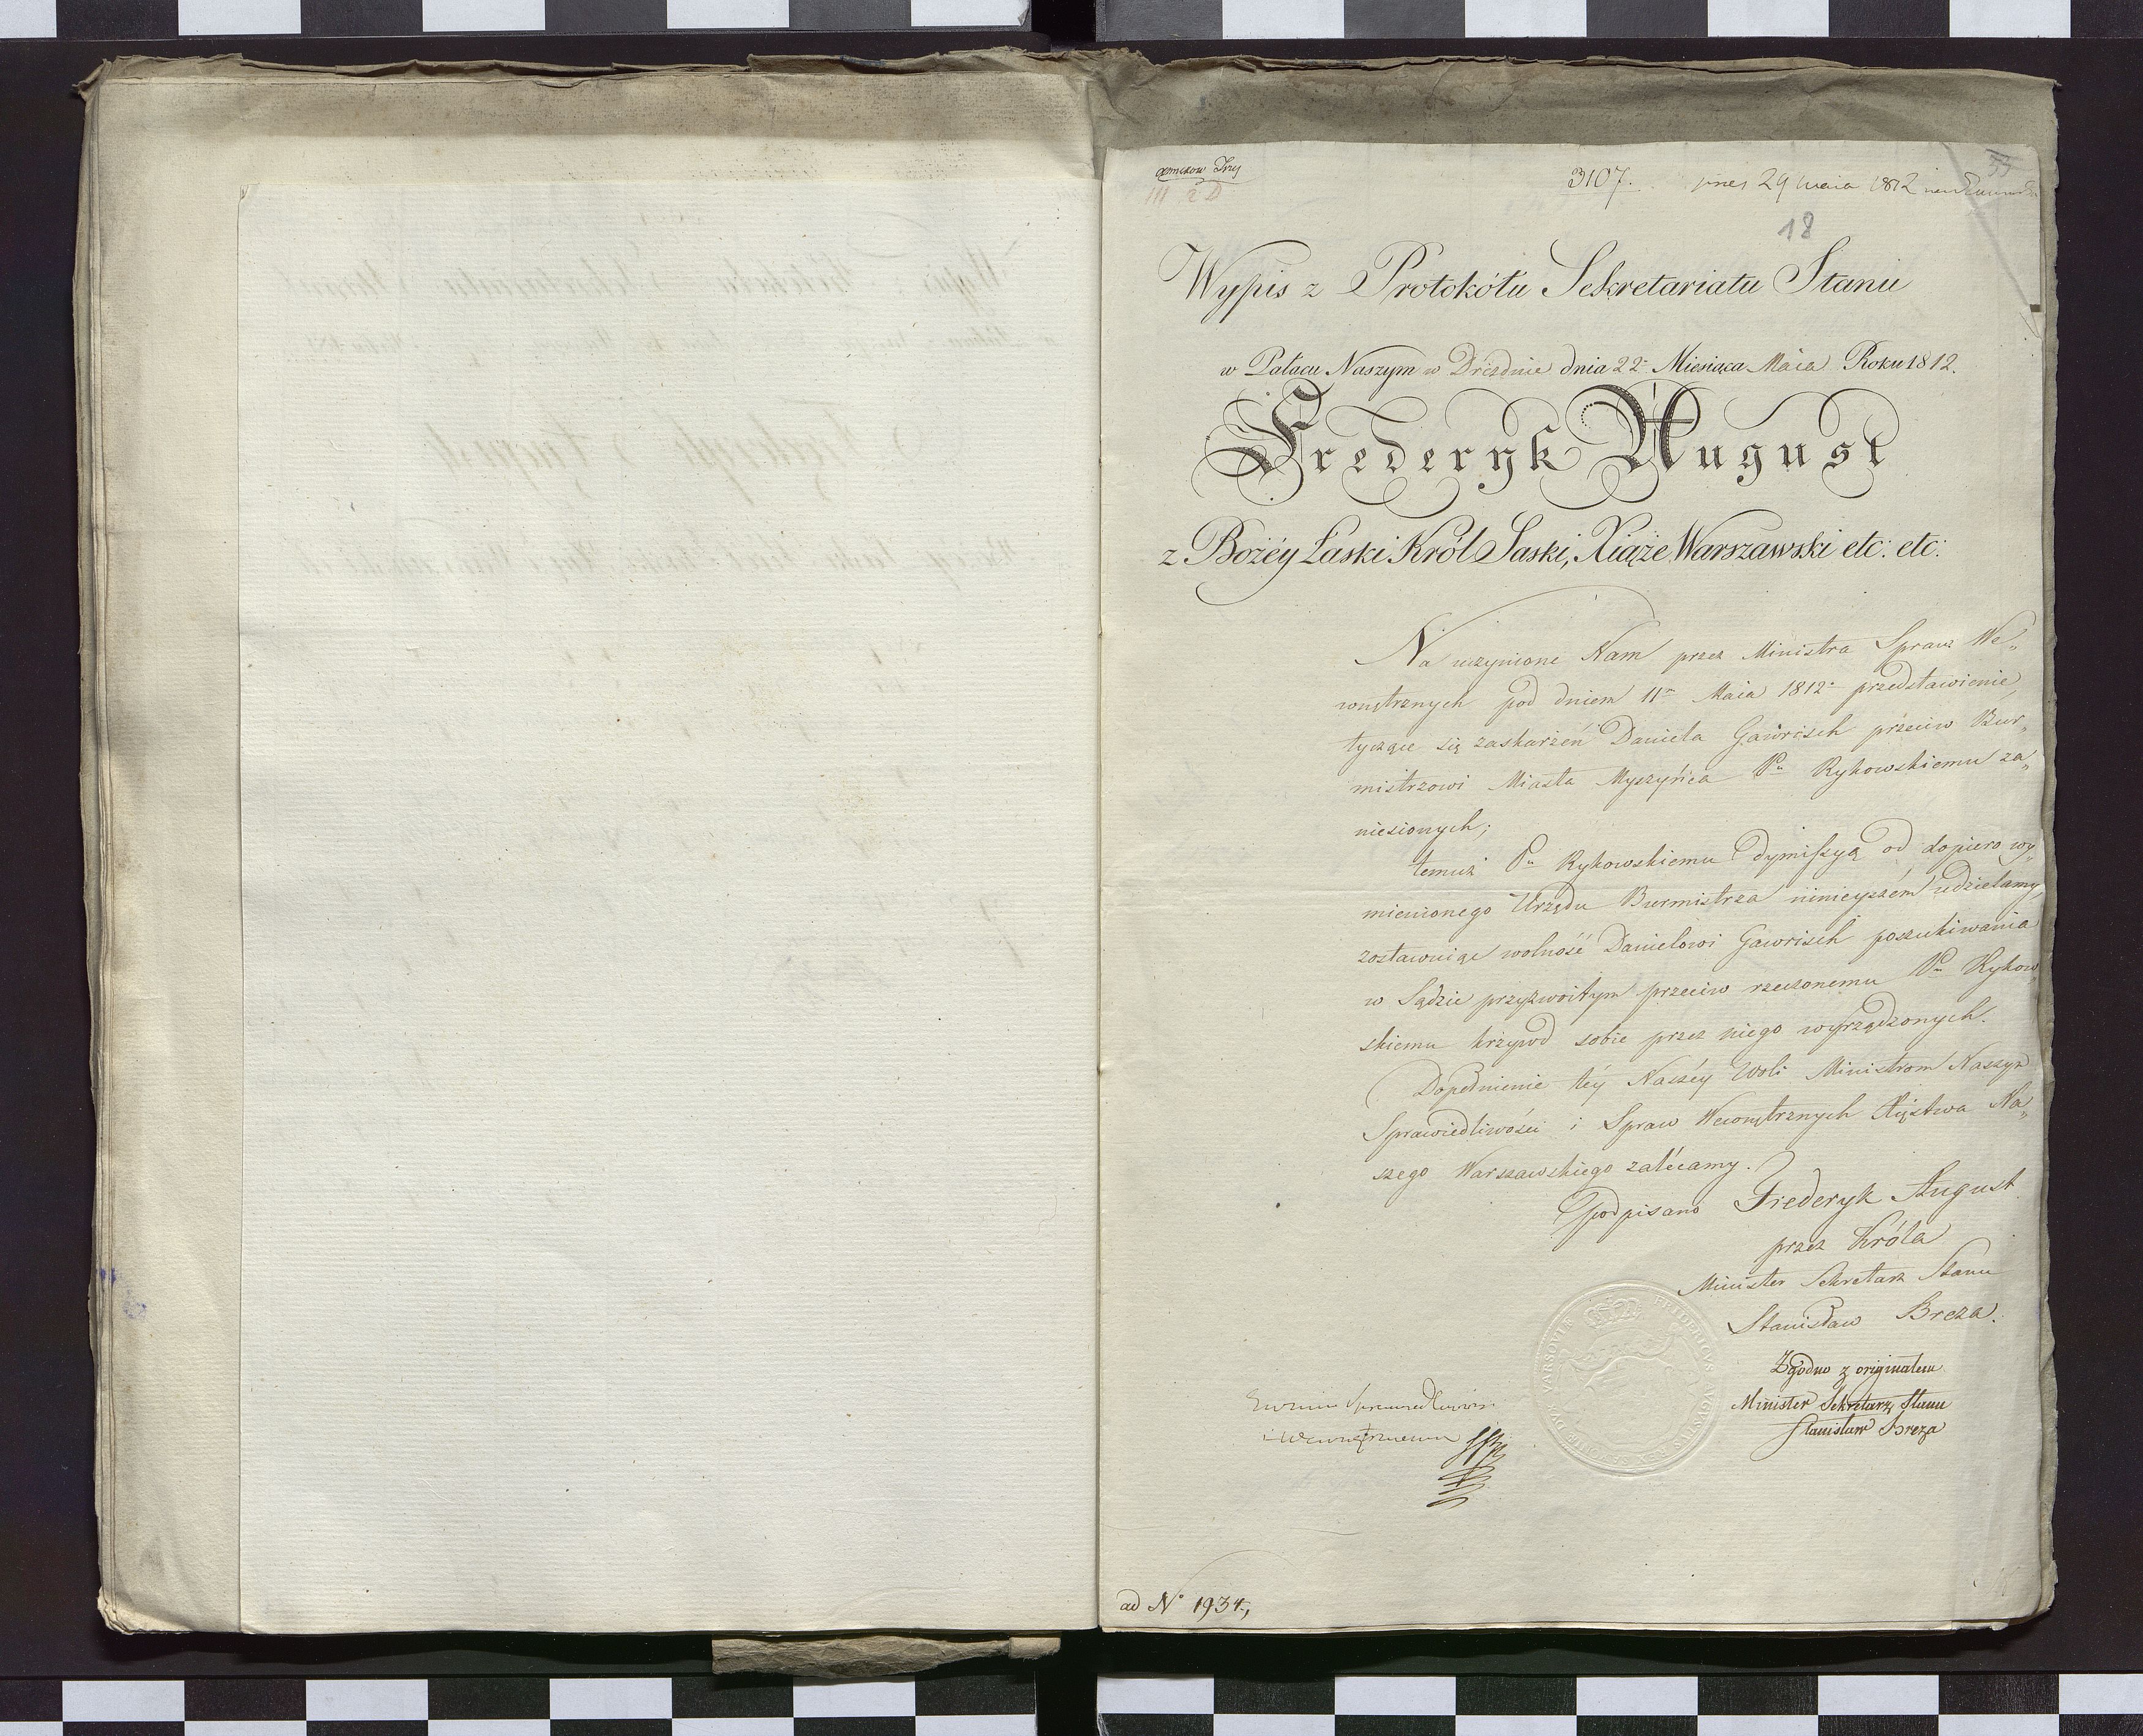 3107.
29 maia 1812
18
Wypis z Protokółu Sekretariatu Stanu
w Pałacu Naszym w Dreźdnie dnia 22 Miesiąca Maia Roku 1812.
Frederyk August
z Bożéy Łaski Król Saski, Xiąże Warszawski etc: etc:
Na uczynione Nam przez Ministra Spraw We„
wnętrznych pod dniem 11m Maia 1812. przedstawienie,
tyczące się zaskarżeń Daniela Gawrisch przeciw Bur„
mistrzowi Miasta Myszyńca Pu Rykowskiemu za„
niesionych;
temuż Pu Rykowskiemu dymissyą od dopiero wy„
mienionego Urzędu Burmistrza ninieyszém udzielamy,
zostawuiąc wolność Danielowi Gawrisch poszukiwania
w Sądzie przyzwoitym przeciw rzeczonemu Pu Rykow„
skiemu krzywd sobie przez niego wyrządzonych.
Dopełnienie téy Naszéy Woli Ministrom Naszym
Sprawiedliwości i Spraw Wewnętrznych Xięstwa Na„
szego Warszawskiego zalécamy.
Podpisano Frederyk August
przez Króla
Minister Sekretarz Stanu
Stanisław Breza.
Zgodno z originałem
Minister Sekretarz Stanu
Stanisław Breza
ad No 1934.,